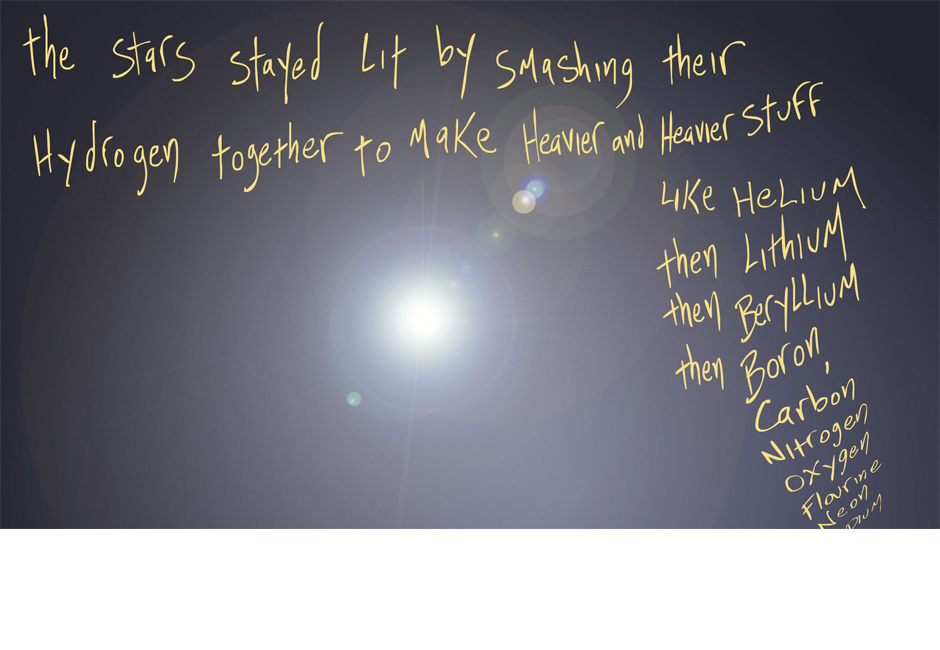 the stars stayed Lit by smashing their
Hydrogen together to Make Heavier and Heavier stuff
Like HeLiuM
then LithiuM
then BeryLLiuM
then Boron,
Carbon
Nitrogen
Oxygen
Flourine
Neon